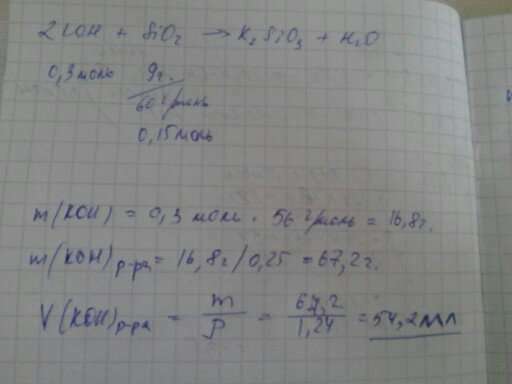 2KOH + SiO₂ → K₂SiO₃ + H₂O
0,3 моль 9г.
60 г/моль
0,15 моль
m(KOH) = 0,3 моль · 56 г/моль = 16,8г.
m(KOH)р-ра = 16,8г/0,25 = 67,2г.
V(KOH)р-ра = m/ρ = 67,2/1,24 = 54,2мл